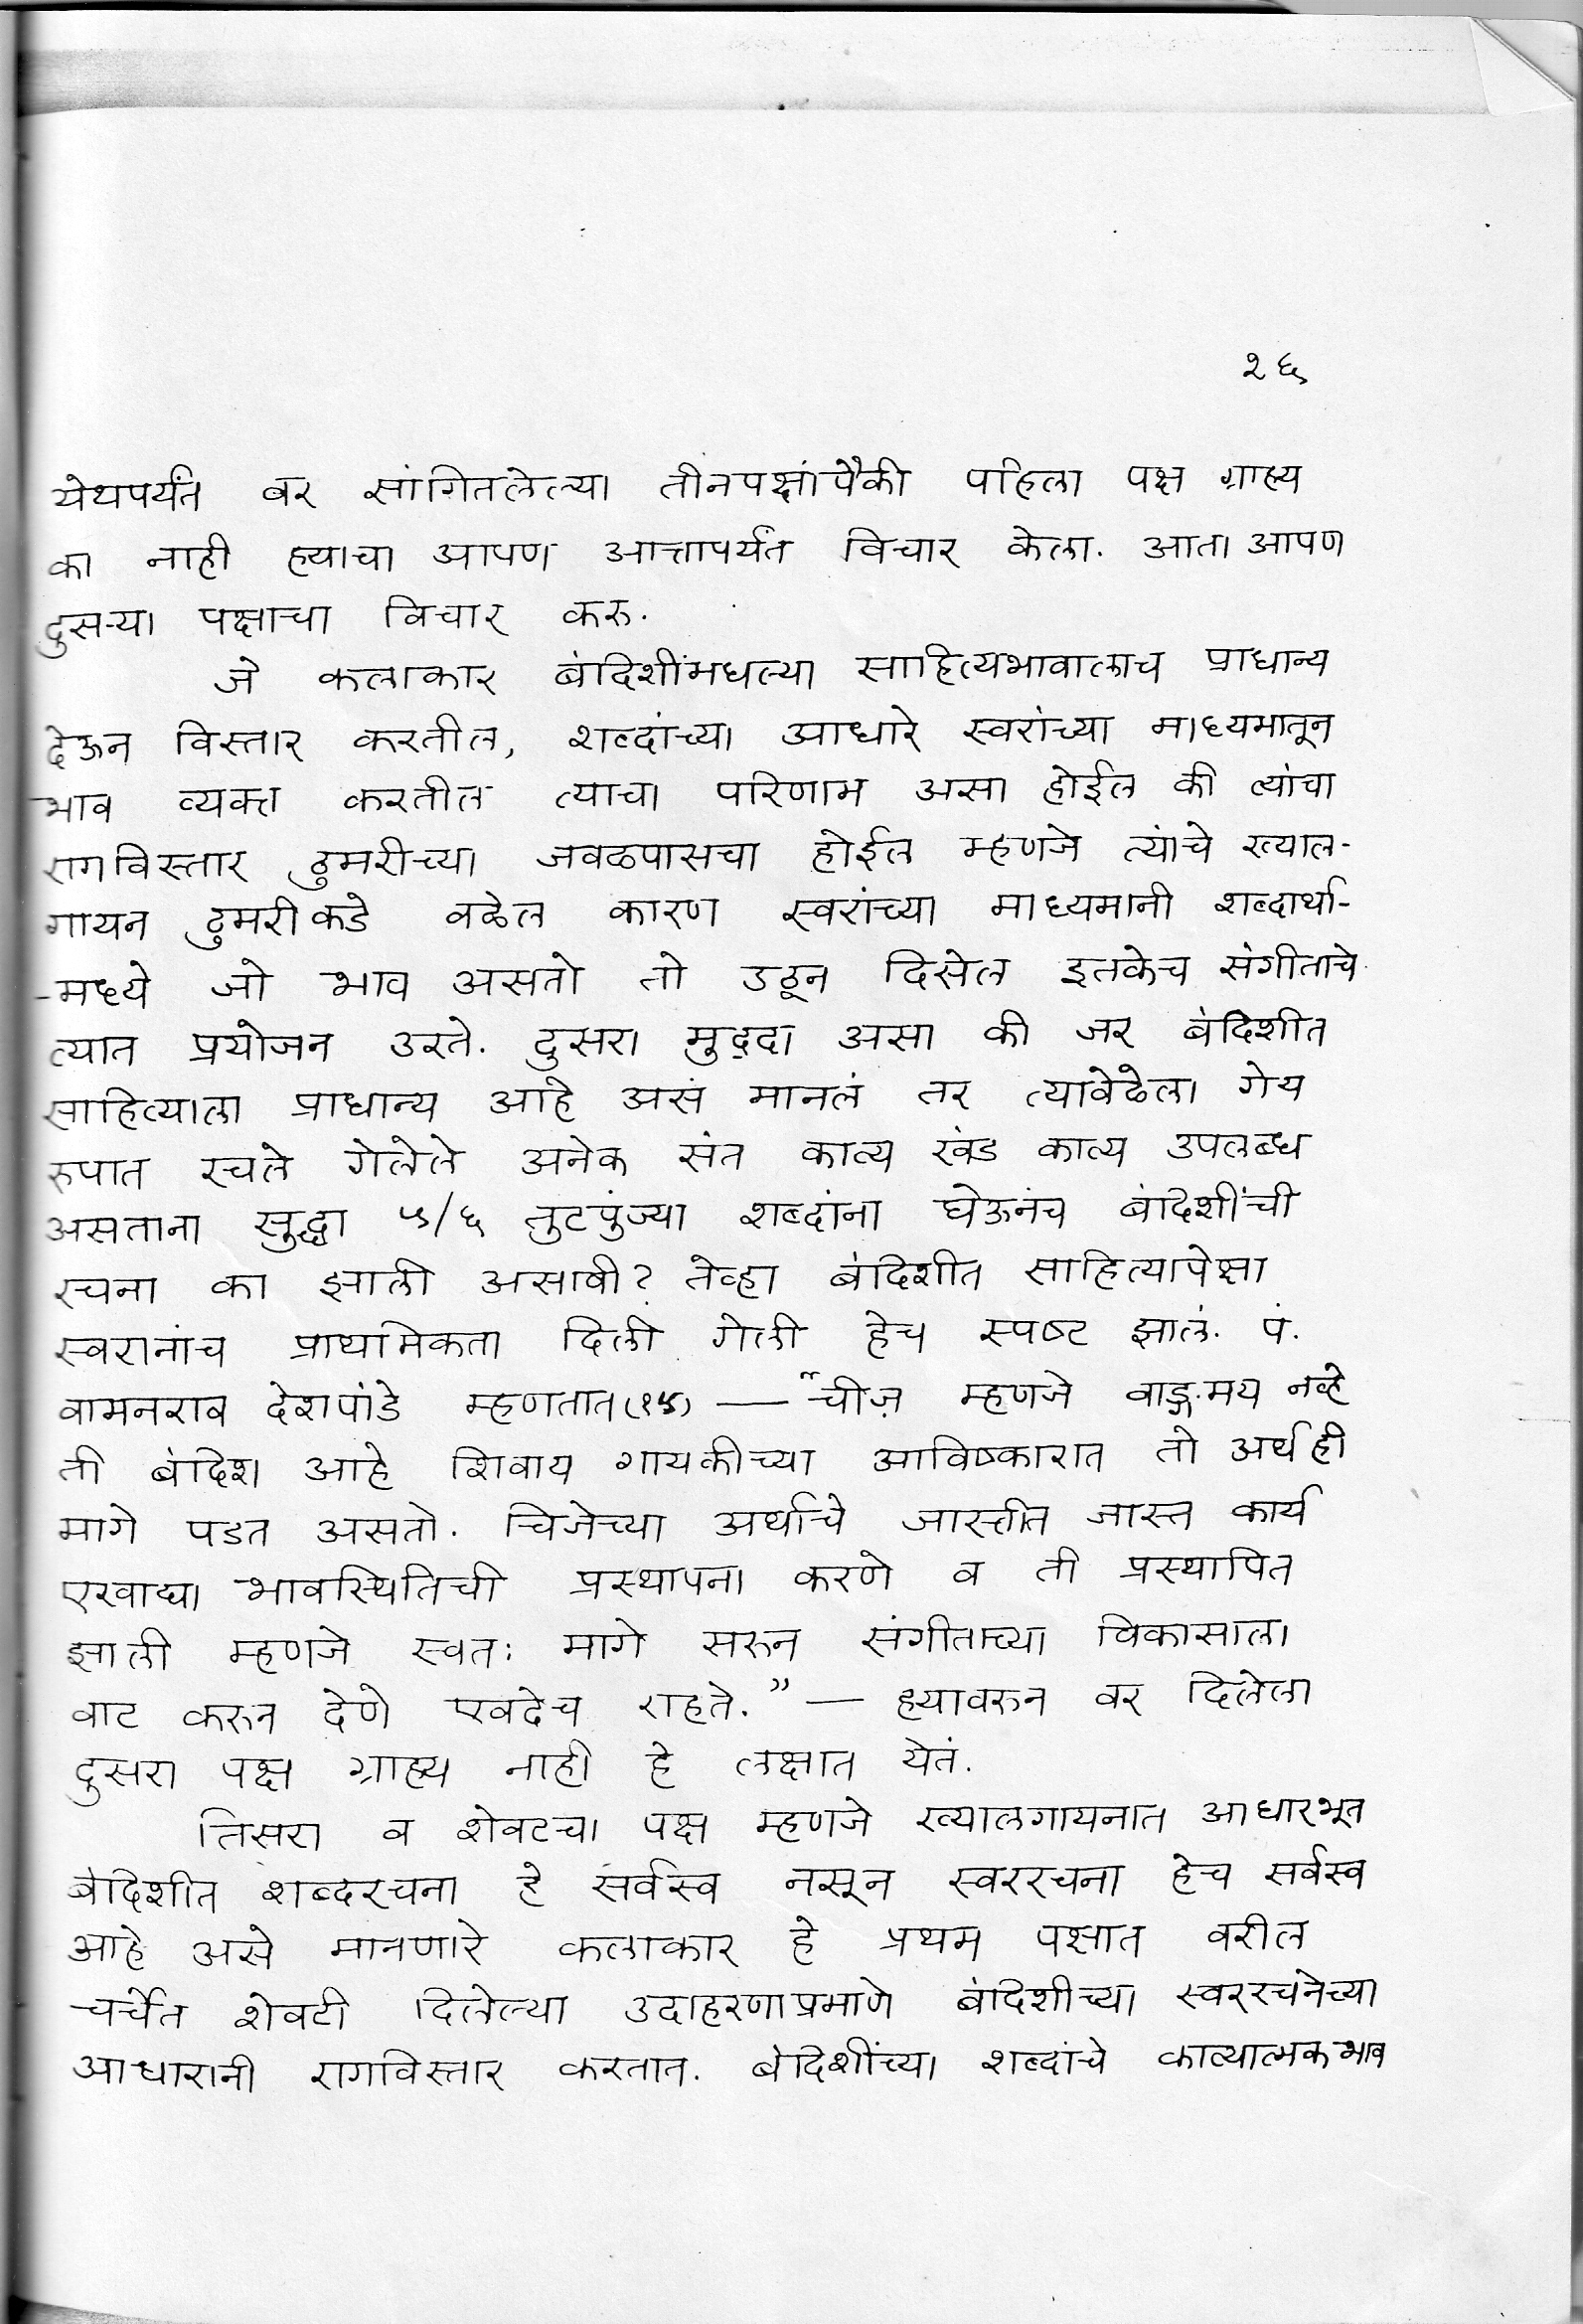 २६
येथपर्यंत वर सांगितलेल्या तीनपक्षांपैकी पहिला पक्ष ग्राह्य
का नाही ह्याचा आपण आत्तापर्यंत विचार केला. आता आपण
दुसऱ्या पक्षाचा विचार करु.
जे कलाकार बंदिशींमधल्या साहित्यभावालाच प्राधान्य
देऊन विस्तार करतील, शब्दांच्या आधारे स्वरांच्या माध्यमातून
भाव व्यक्त करतील त्याचा परिणाम असा होईल की त्यांचा
रागविस्तार ठुमरीच्या जवळपासचा होईल म्हणजे त्यांचे ख्याल-
गायन ठुमरीकडे वळेल कारण स्वरांच्या माध्यमानी शब्दार्था-
-मध्ये जो भाव असतो तो उठून दिसेल इतकेच संगीताचे
त्यात प्रयोजन उरते. दुसरा मुद्‌दा असा की जर बंदिशीत
साहित्याला प्राधान्य आहे असं मानलं तर त्यावेळेला गेय
रुपात रचले गेलेले अनेक संत काव्य खंड काव्य उपलब्ध
असताना सुद्धा ५/६ तुटपुंज्या शब्दांना घेऊनंच बंदिशींची
रचना का झाली असावी? तेव्हा बंदिशीत साहित्यापेक्षा
स्वरानांच प्राथमिकता दिली गेली हेच स्पष्ट झालं. पं.
वामनराव देशपांडे म्हणतात(१५) — "चीज़ म्हणजे वाङ्मय नव्हे
ती बंदिश आहे शिवाय गायकीच्या आविष्कारात तो अर्थही
मागे पडत असतो. चिजेच्या अर्थाचे जास्तीत जास्त कार्य
एखाद्या भावस्थितिची प्रस्थापना करणे व ती प्रस्थापित
झाली म्हणजे स्वतः मागे सरुन संगीताच्या विकासाला
वाट करुन देणे एवढेच राहते." — ह्यावरुन वर दिलेला
दुसरा पक्ष ग्राह्य नाही हे लक्षात येतं.
तिसरा व शेवटचा पक्ष म्हणजे ख्यालगायनात आधारभूत
बंदिशीत शब्दरचना हे सर्वस्व नसून स्वररचना हेच सर्वस्व
आहे असे मानणारे कलाकार हे प्रथम पक्षात वरील
चर्चेत शेवटी दिलेल्या उदाहरणाप्रमाणे बंदिशीच्या स्वररचनेच्या
आधारानी रागविस्तार करतात. बंदिशींच्या शब्दांचे काव्यात्मक भाव